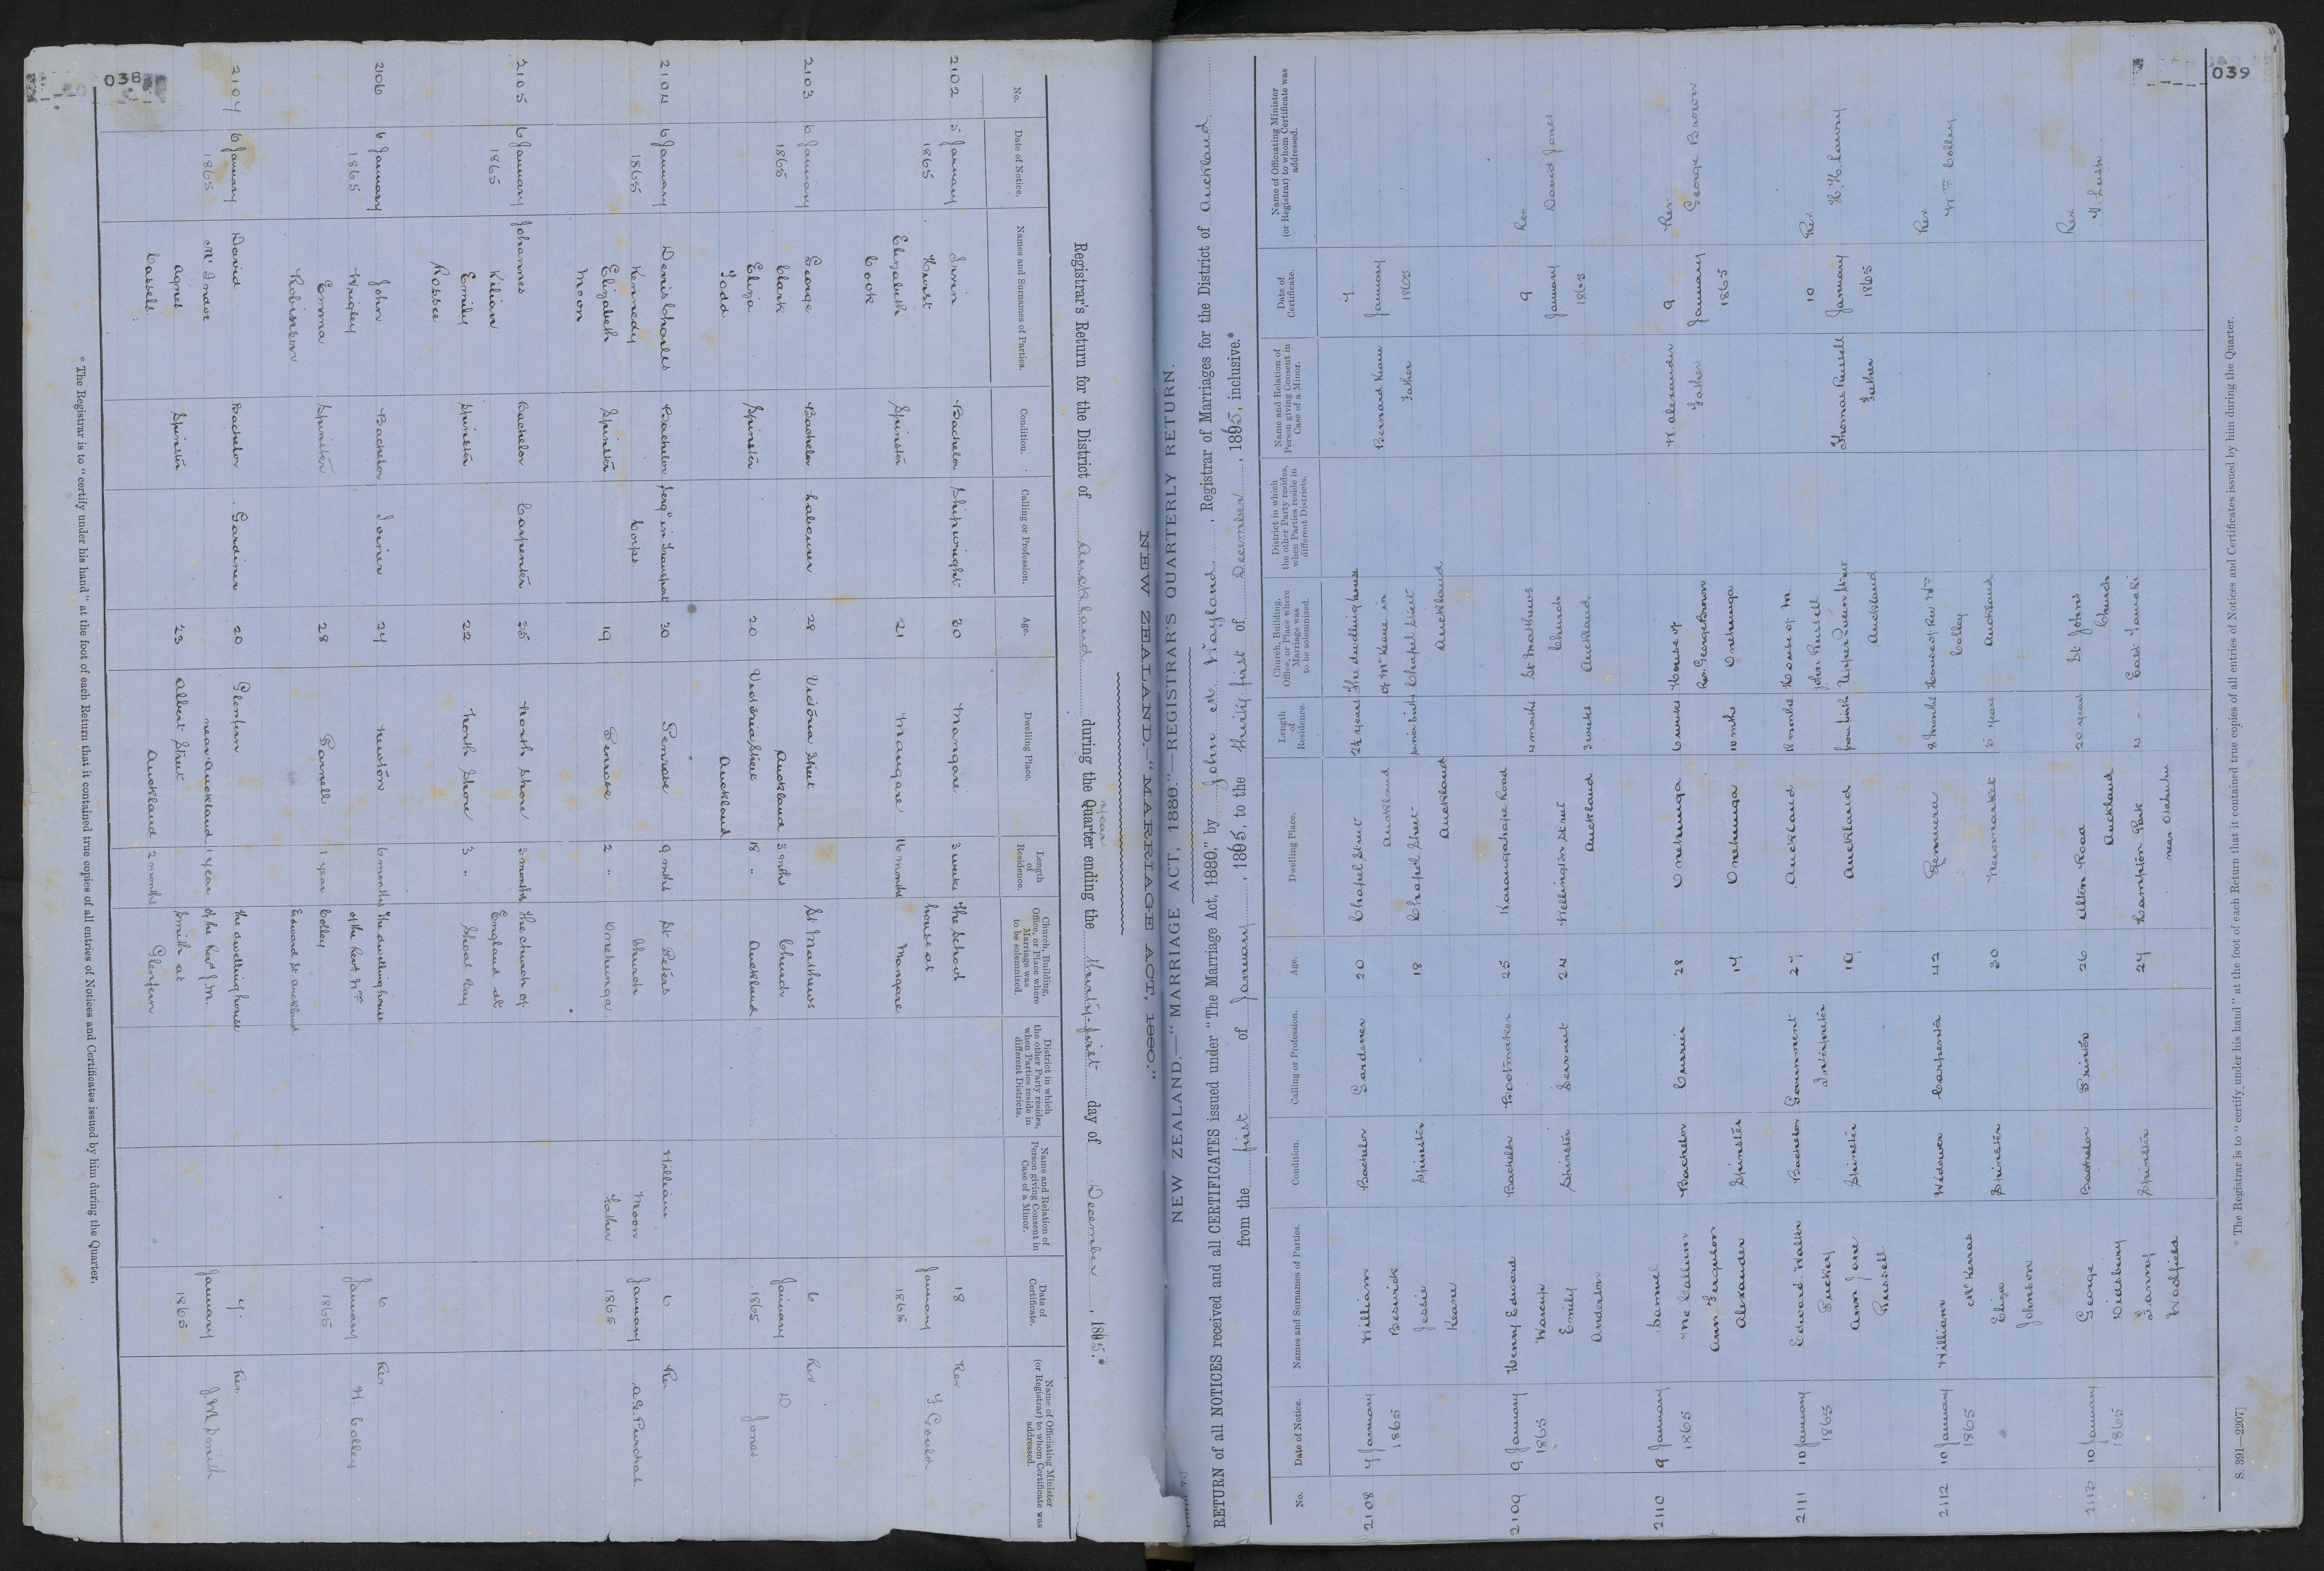 038
NEW ZEALAND.—"MARRIAGE ACT, 1880."
Registrar's Return for the District of Auckland during the Quarter ending the thirty-first day of December, 1865.*
year
No.
Date of Notice.
Names and Surnames of Parties.
Condition.
Calling or Profession.
Age.
Dwelling Place.
Length of Residence.
Church, Building, Office, or Place where Marriage was to be solemnized.
District in which the other Party resides, when Parties reside in different Districts.
Name and Relation of Person giving Consent in Case of a Minor.
Date of Certificate.
Name of Officiating Minister (or Registrar) to whom Certificate was addressed.
2102 5 January Irvin Bachelor Shipwright 30 Mangare 3 weeks The School 18 Rev
1865 Hurst house at January F Gould
Elizabeth Spinster 21 Maugare 16 months Mangare 1865
Cook
2103 6 January George Bachelor Labourer 28 Victoria Street 3 mths St Mathews 6 Rev
1865 Clark Auckland Church January D
Eliza Spinster 20 Victoria Street 18 " Auckland 1865 Jones
Todd Auckland
2104 6 January Denis Charles Bachelor Serg^t in Transport 30 Penrose 9 mths St Peters William 6 Rev
1865 Kennedy Corps Church Moon January A.G. Purchas
Elizabeth Spinster 19 Penrose 2 " Onehunga Father 1865
Moon
2105 6 January Johannes Bachelor Carpenter 35 North Shore 3 months The church of
1865 Kilian England at
Emily Spinster 22 North Shore 3 " Shoal Bay
Rossee
2106 6 January John Bachelor Joiner 24 Newton 6 months The dwelling house 6 Rev
1865 Wrigley of the Rev^d W^m January W. Colley
Emma Spinster 28 Parnell 1 year Colley 1865
Robinson Edward St Auckland
2107 6 January David Bachelor Gardiner 20 Glenfern 1 year the dwelling house 7. Rev.
1865 M^c Indoe near Auckland of the Rev^d J.M. January J.M. Smith
Agnes Spinster 23 Albert Street 2 months Smith at 1865
Cassels Auckland Glenfern
* The Registrar is to "certify under his hand" at the foot of each Return that it contained true copies of all entries of Notices and Certificates issued by him during the Quarter.
039
NEW ZEALAND.—"MARRIAGE ACT, 1880."—REGISTRAR'S QUARTERLY RETURN.
RETURN of all NOTICES received and all CERTIFICATES issued under "The Marriage Act, 1880," by John M Wayland, Registrar of Marriages for the District of Auckland
from the first of January, 1865, to the thirty first of December, 1865, inclusive.*
No.
Date of Notice.
Names and Surnames of Parties.
Condition.
Calling or Profession.
Age.
Dwelling Place.
Length of Residence.
Church, Building, Office, or Place where Marriage was to be solemnized.
District in which the other Party resides, when Parties reside in different Districts.
Name and Relation of Person giving Consent in Case of a Minor.
Date of Certificate.
Name of Officiating Minister (or Registrar) to whom Certificate was addressed.
2108 7 January William Bachelor Gardener 20 Chapel Street 2½ years The dwelling house Bernard Keane 7
1865 Beswick Auckland of M^r Keane in Father January
Jessie Spinster 18 Chapel Street since birth Chapel Street 1865
Keane Auckland Auckland
2109 9 January Henry Edward Bachelor Bootmaker 25 Karangahape Road 4 months St Mathews 9 Rev
1865 Warcup Church January David Jones
Emily Spinster Servant 24 Wellington Street 3 weeks Auckland 1865
Anderson Auckland
2110 9 January Samuel Bachelor Currier 28 Onehunga 6 weeks House of W. Alexander 9 Rev
1865 McCallum Rev George Brown Father January George Brown
Ann Ferguson Spinster 17 Onehunga 10 mths Onehunga 1865
Alexander
2111 10 January Edward Walker Bachelor Government 27 Auckland 18 months House of M. Thomas Russell 10 Rev
1865 Puckey Interpreter John Russell Father January H.H. Lawry
Ann Jane Spinster 19 Auckland from birth Upper Queen Street 1865
Russell Auckland
2112 10 January William Widower Carpenter 42 Remuera 8 months House of Rev W^m Rev
1865 M^c Kerras Colley W^m Colley
Eliza Spinster 30 Newmarket 5 years Auckland
Johnson
2113 10 January George Bachelor Printer 26 Alten Road 20 years St Johns Rev
1865 Didsbury Auckland Church V. Lush
Fanny Spinster 24 Hampton Park 4 " East Tamaki
Wadfield near Otahuhu
* The Registrar is to "certify under his hand" at the foot of each Return that it contained true copies of all entries of Notices and Certificates issued by him during the Quarter.
S. 391—2207]